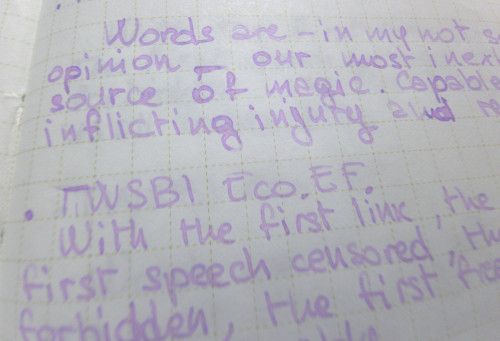 Words are – in my not
opinion – our most
source of magic. Capable
inflicting injury and
• TWSBI Eco. EF.
With the first link, the
first speech censored,
forbidden, the first